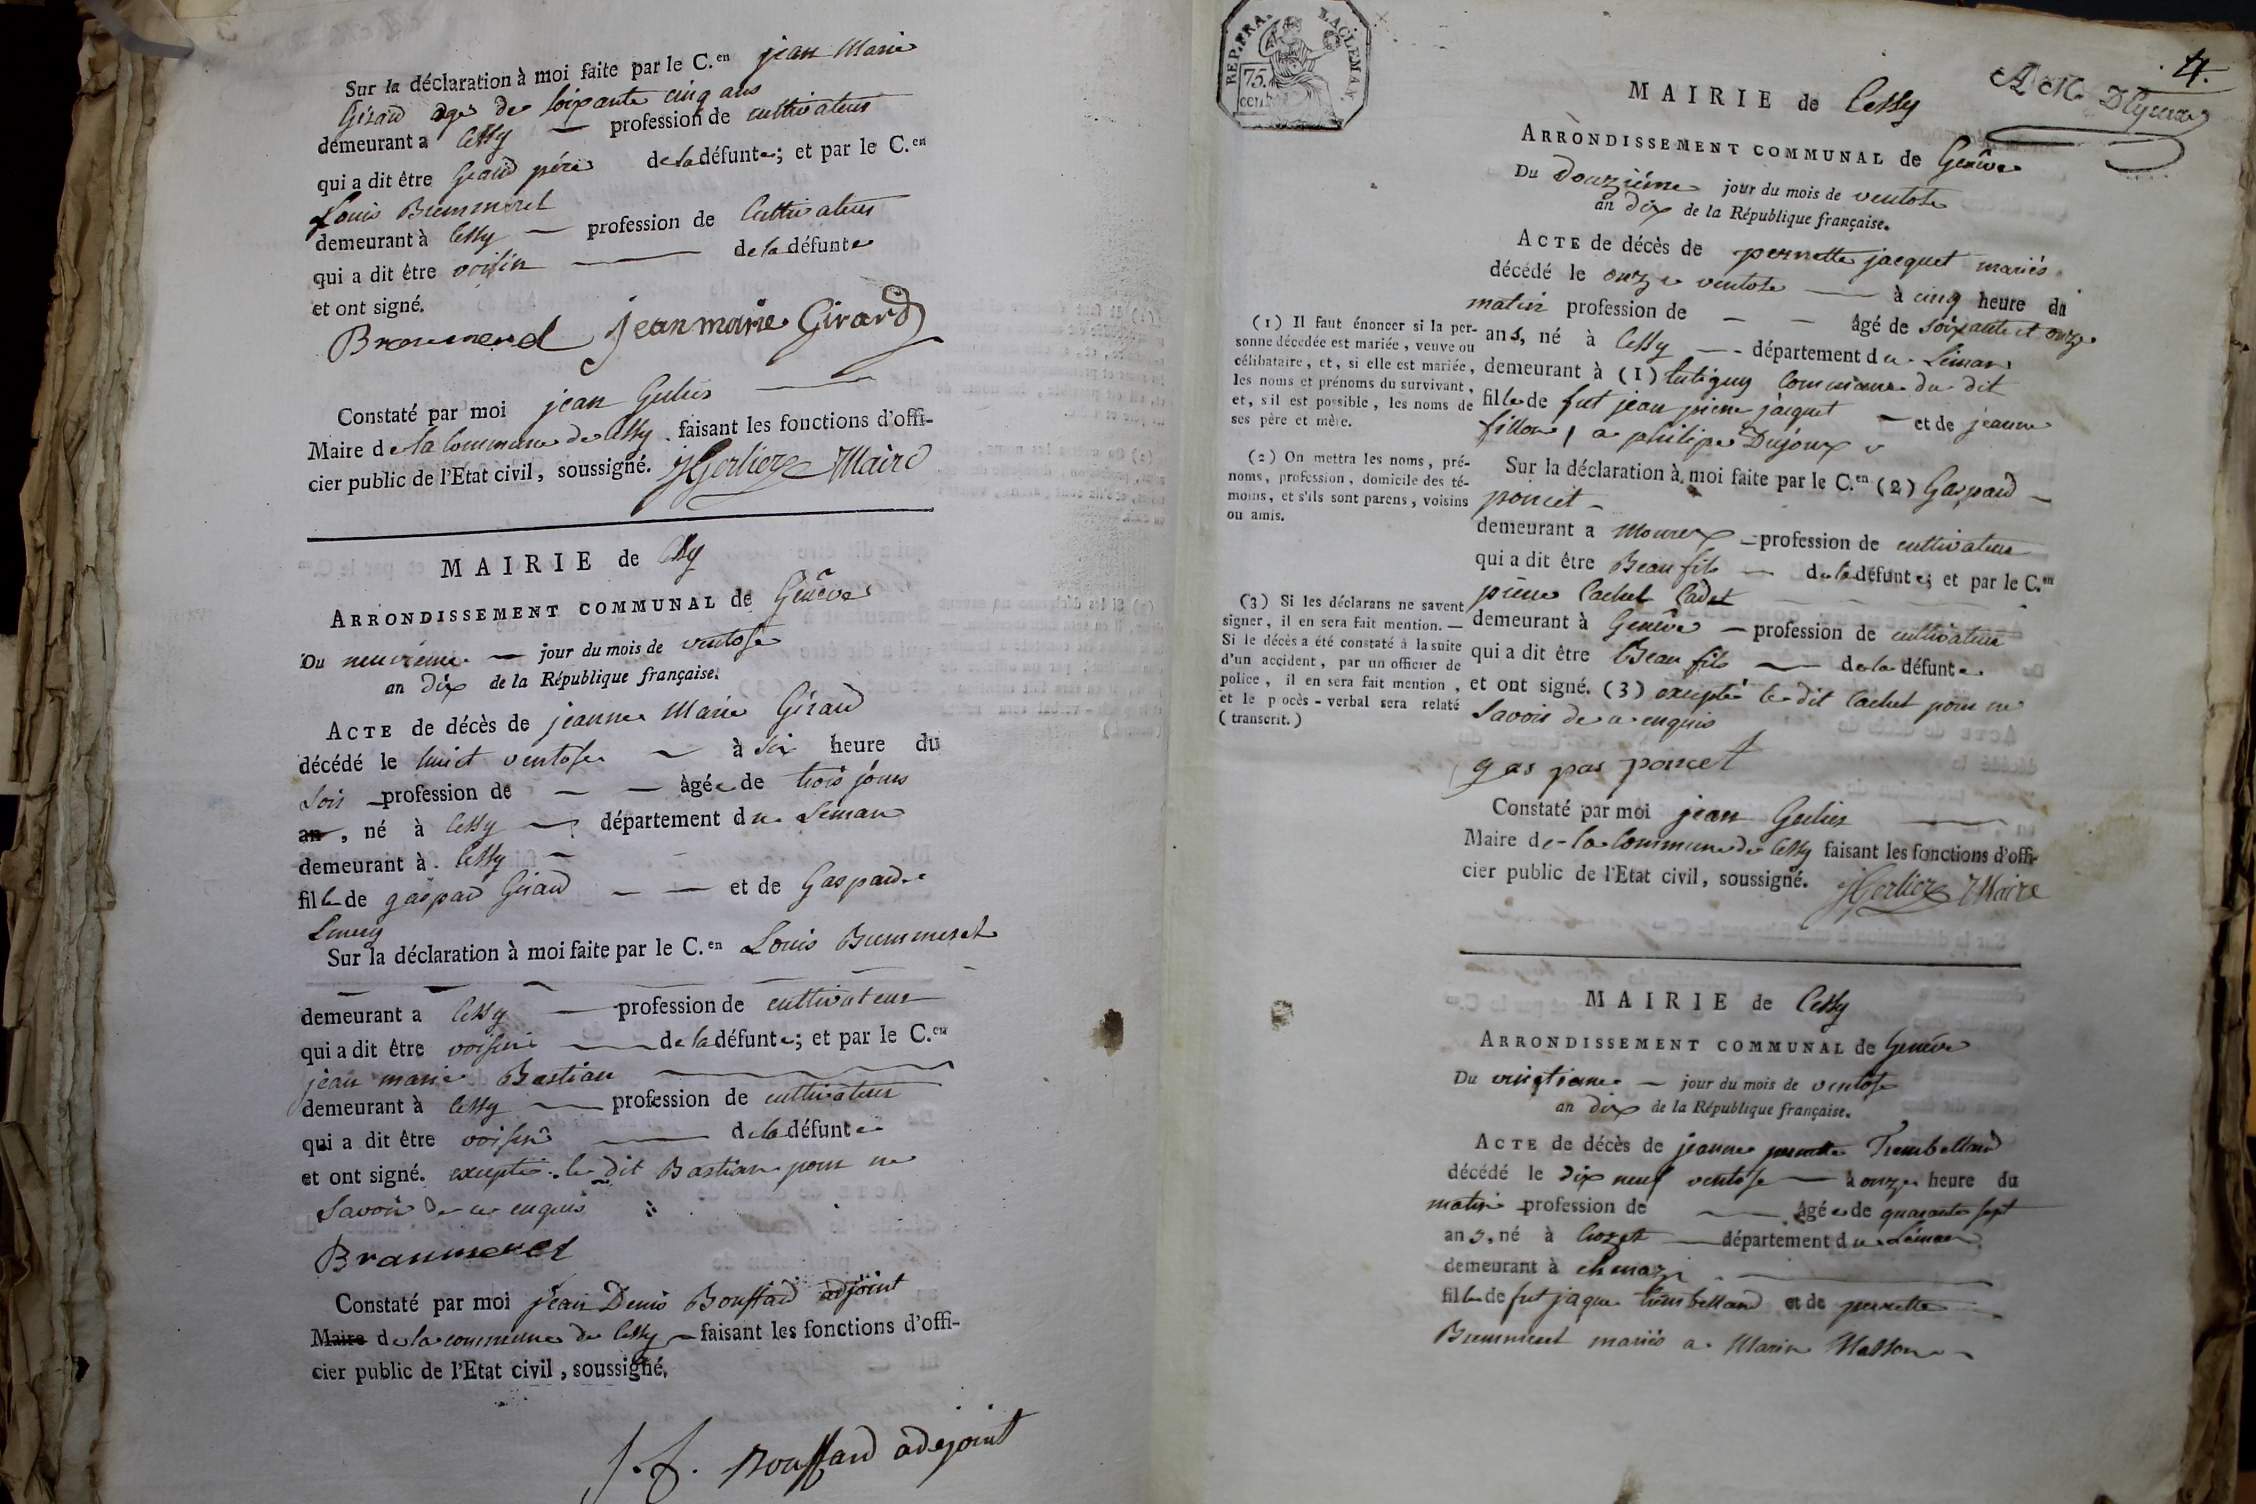 Sur la déclaration à moi faite par le C.en jean Marie
Girard age de soixante cinq ans
demeurant a Cessy — profession de cultivateur
qui a dit être Grand pére de la défunte; et par le C.en
Louis Brummerel
demeurant à Cessy — profession de Cultivateur
qui a dit être voisin — de la défunte
et ont signé.
Jean marie Girard
Constaté par moi jean Gerlier
Maire de la Commune de Cessy faisant les fonctions d'offi-
cier public de l'Etat civil, soussigné. JGerlier Maire
MAIRIE de Cessy
ARRONDISSEMENT COMMUNAL de Genêve
Du neuvieme — jour du mois de ventose
an dix de la République française.
ACTE de décès de jeanne Marie Girard
décédé le huit ventose — à six heure du
soir — profession de — — âgée de trois jours
an, né à Cessy — département du Léman
demeurant à Cessy —
fille de gaspard Girard — — et de Gasparde
Sur la déclaration à moi faite par le C.en Louis Brummerel
demeurant a Cessy — profession de cultivateur
qui a dit être voisin — de la défunte; et par le C.en
jean marie Bastian
demeurant à Cessy — profession de cultivateur
qui a dit être voisin — de la défunte
et ont signé. excepté le dit Bastian pour ne
Savoir de ce enquis
Constaté par moi jean Denis Bouffard adjoint
Maire de la commune de Cessy — faisant les fonctions d'offi-
cier public de l'Etat civil, soussigné.
J. D. Bouffard adejoint
REP. FRA.
75.
cent.
4.
MAIRIE de Cessy
ARRONDISSEMENT COMMUNAL de Genêve
Du Douziéme jour du mois de ventose
an dix de la République française.
ACTE de décès de pernette jacquet mariés
décédé le onze ventose — à cinq heure du
matin profession de — — âgé de soixante et onze
ans, né à Cessy — département du Léman
demeurant à (1) commune du dit
fille de fut jean pierre jacquet — et de jeanne
fillon, a philipe Dujoux
(1) Il faut énoncer si la per-
sonne décédée est mariée, veuve ou
célibataire, et, si elle est mariée,
les noms et prénoms du survivant,
et, s'il est possible, les noms de
ses père et mère.
Sur la déclaration à moi faite par le C.en (2) Gaspard —
poncet —
demeurant a Mourex — profession de cultivateur
qui a dit être Beau fils — de la défunte; et par le C.en
pierre Cachet Cadet
demeurant à Genêve — profession de cultivateur
qui a dit être Beau fils — de la défunte
et ont signé. (3) excepté le dit Cachet pour ne
Savoir de ce enquis
(2) On mettra les noms, pré-
noms, profession, domicile des té-
moins, et s'ils sont parens, voisins
ou amis.
(3) Si les déclarans ne savent
signer, il en sera fait mention. —
Si le décès a été constaté à la suite
d'un accident, par un officier de
police, il en sera fait mention,
et le procès-verbal sera relaté
(transcrit.)
gas par poncet
Constaté par moi jean Gerlier
Maire de la Commune de Cessy faisant les fonctions d'offi-
cier public de l'Etat civil, soussigné. JGerlier Maire
MAIRIE de Cessy
ARRONDISSEMENT COMMUNAL de Genêve
Du vingtieme — jour du mois de ventose
an dix de la République française.
ACTE de décès de jeanne pernette Trembelland
décédé le dix neuf ventose — à onze heure du
matin profession de — âgée de quarante sept
ans, né à Crozet — département du Léman
demeurant à
fille de fut jaque trembelland et de pernette
Brummerel mariés a Marin Masson